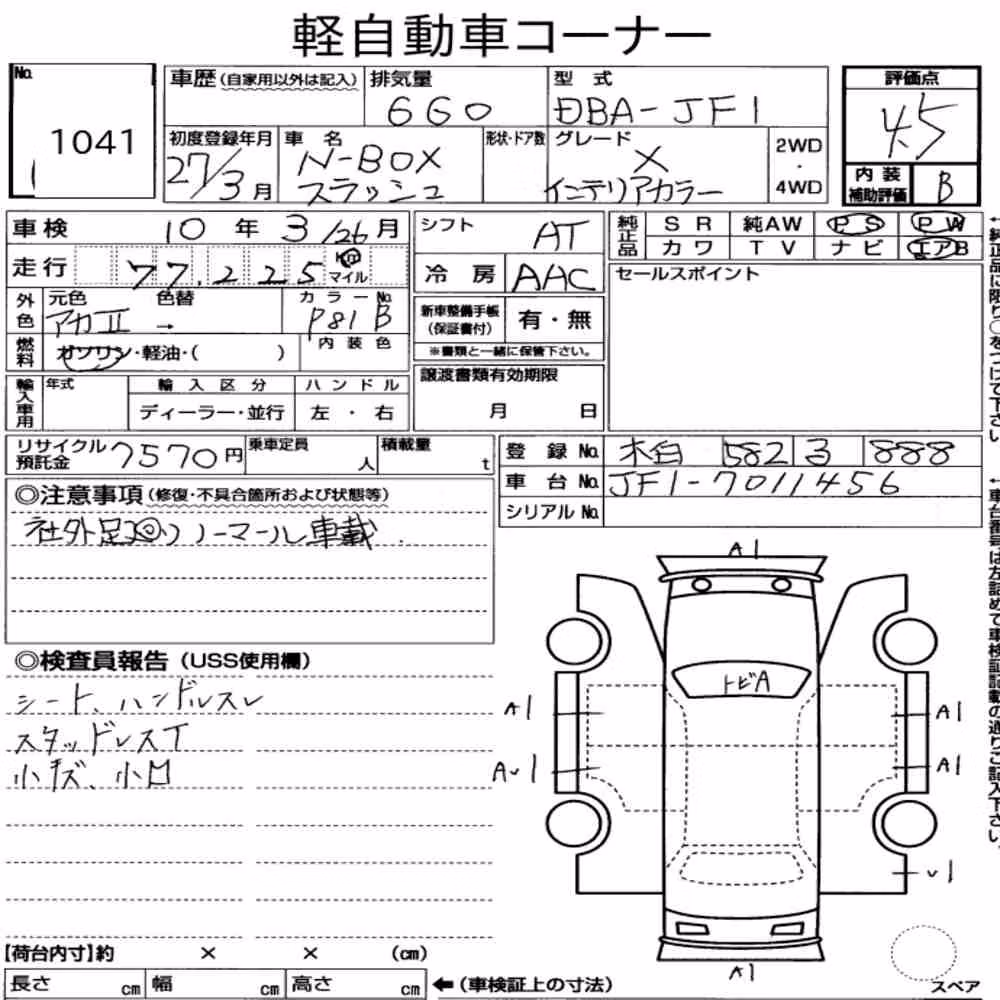 軽自動車コーナー
No. 1041
車歴(自家用以外は記入) 排気量 660 型式 DBA-JF1
初度登録年月 27/3月 車名 N-BOX スラッシュ 形状・ドア数 グレード X インテリアカラー 2WD・4WD
評価点 4.5
内装補助評価 B
車検 10年3/26月
走行 77,225 km マイル
外色 元色 アカII 色替 → カラーNo. P81 B
燃料 ガソリン・軽油・( ) 内装色
輸入車用 年式 輸入区分 ハンドル
ディーラー・並行 左・右
シフト AT
冷房 AAC
新車整備手帳(保証書付) 有・無
※書類と一緒に保管下さい。
譲渡書類有効期限
月 日
純正品 SR 純AW PS PW
カワ TV ナビ エアB
セールスポイント
←純正品に限り○をつけて下さい。
リサイクル預託金 7570円 乗車定員 人 積載量 t
登録No. 582 3 888
車台No. JF1-7011456
シリアルNo.
←車台番号は左詰めで車検証記載の通りご記入下さい。
◎注意事項(修復・不具合箇所および状態等)
社外足廻り ノーマール車載.
◎検査員報告(USS使用欄)
シート、ハンドルスレ
スタッドレスT
小キズ、小凹
A1
トビA
A1 A1
Au1 A1
u1
A1
【荷台内寸】約 × × (cm)
長さ cm 幅 cm 高さ cm ←(車検証上の寸法)
スペア